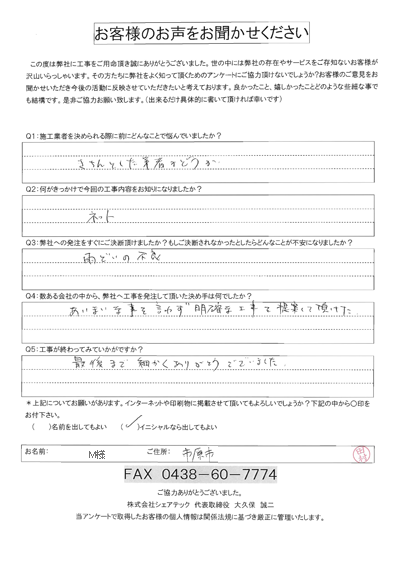 お客様のお声をお聞かせください
この度は弊社に工事をご用命頂き誠にありがとうございました。世の中には弊社の存在やサービスをご存知ないお客様が
沢山いらっしゃいます。その方たちに弊社をよく知って頂くためのアンケートにご協力頂けないでしょうか?お客様のご意見をお
聞かせいただき今後の活動に反映させていただきたいと考えております。良かったこと、嬉しかったことどのような些細な事で
も結構です。是非ご協力お願い致します。(出来るだけ具体的に書いて頂ければ幸いです)
Q1:施工業者を決められる際に前にどんなことで悩んでいましたか?
きちんとした業者かどうか
Q2:何がきっかけで今回の工事内容をお知りになりましたか?
ネット
Q3:弊社への発注をすぐにご決断頂けましたか?もしご決断されなかったとしたらどんなことが不安になりましたか?
雨どいの不良
Q4:数ある会社の中から、弊社へ工事を発注して頂いた決め手は何でしたか?
あいまいな事を言わず明確な工事を提案して頂けた
Q5:工事が終わってみていかがですか?
最後まで細かくありがとうございました
*上記についてお願いがあります。インターネットや印刷物に掲載させて頂いてもよろしいでしょうか?下記の中から○印を
お付下さい。
( )名前を出してもよい (✓)イニシャルなら出してもよい
お名前: M様 ご住所: 市原市
FAX 0438-60-7774
ご協力ありがとうございました。
株式会社シェアテック 代表取締役 大久保 誠二
当アンケートで取得したお客様の個人情報は関係法規に基づき厳正に管理いたします。